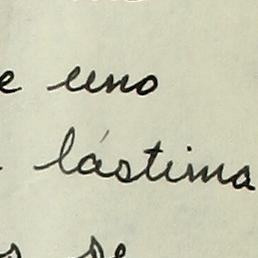 e uno
lástima
se